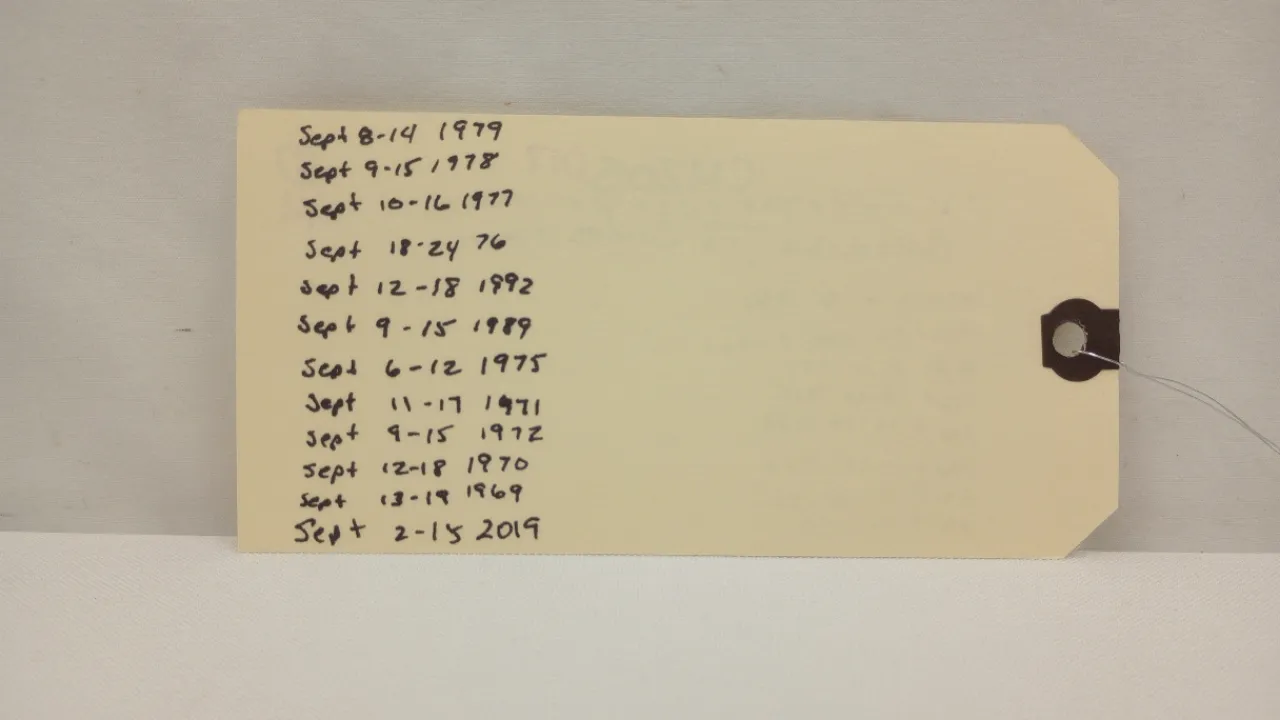 Sept 8-14 1979
Sept 9-15 1978
Sept 10-16 1977
Sept 18-24 76
Sept 12-18 1992
Sept 9-15 1989
Sept 6-12 1975
Sept 11-17 1971
Sept 9-15 1972
Sept 12-18 1970
Sept 13-19 1969
Sept 2-15 2019